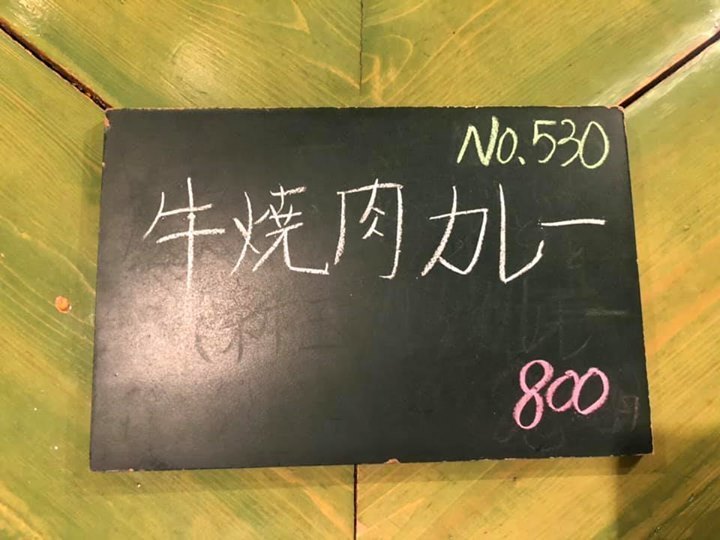 No.530
牛焼肉カレー
800